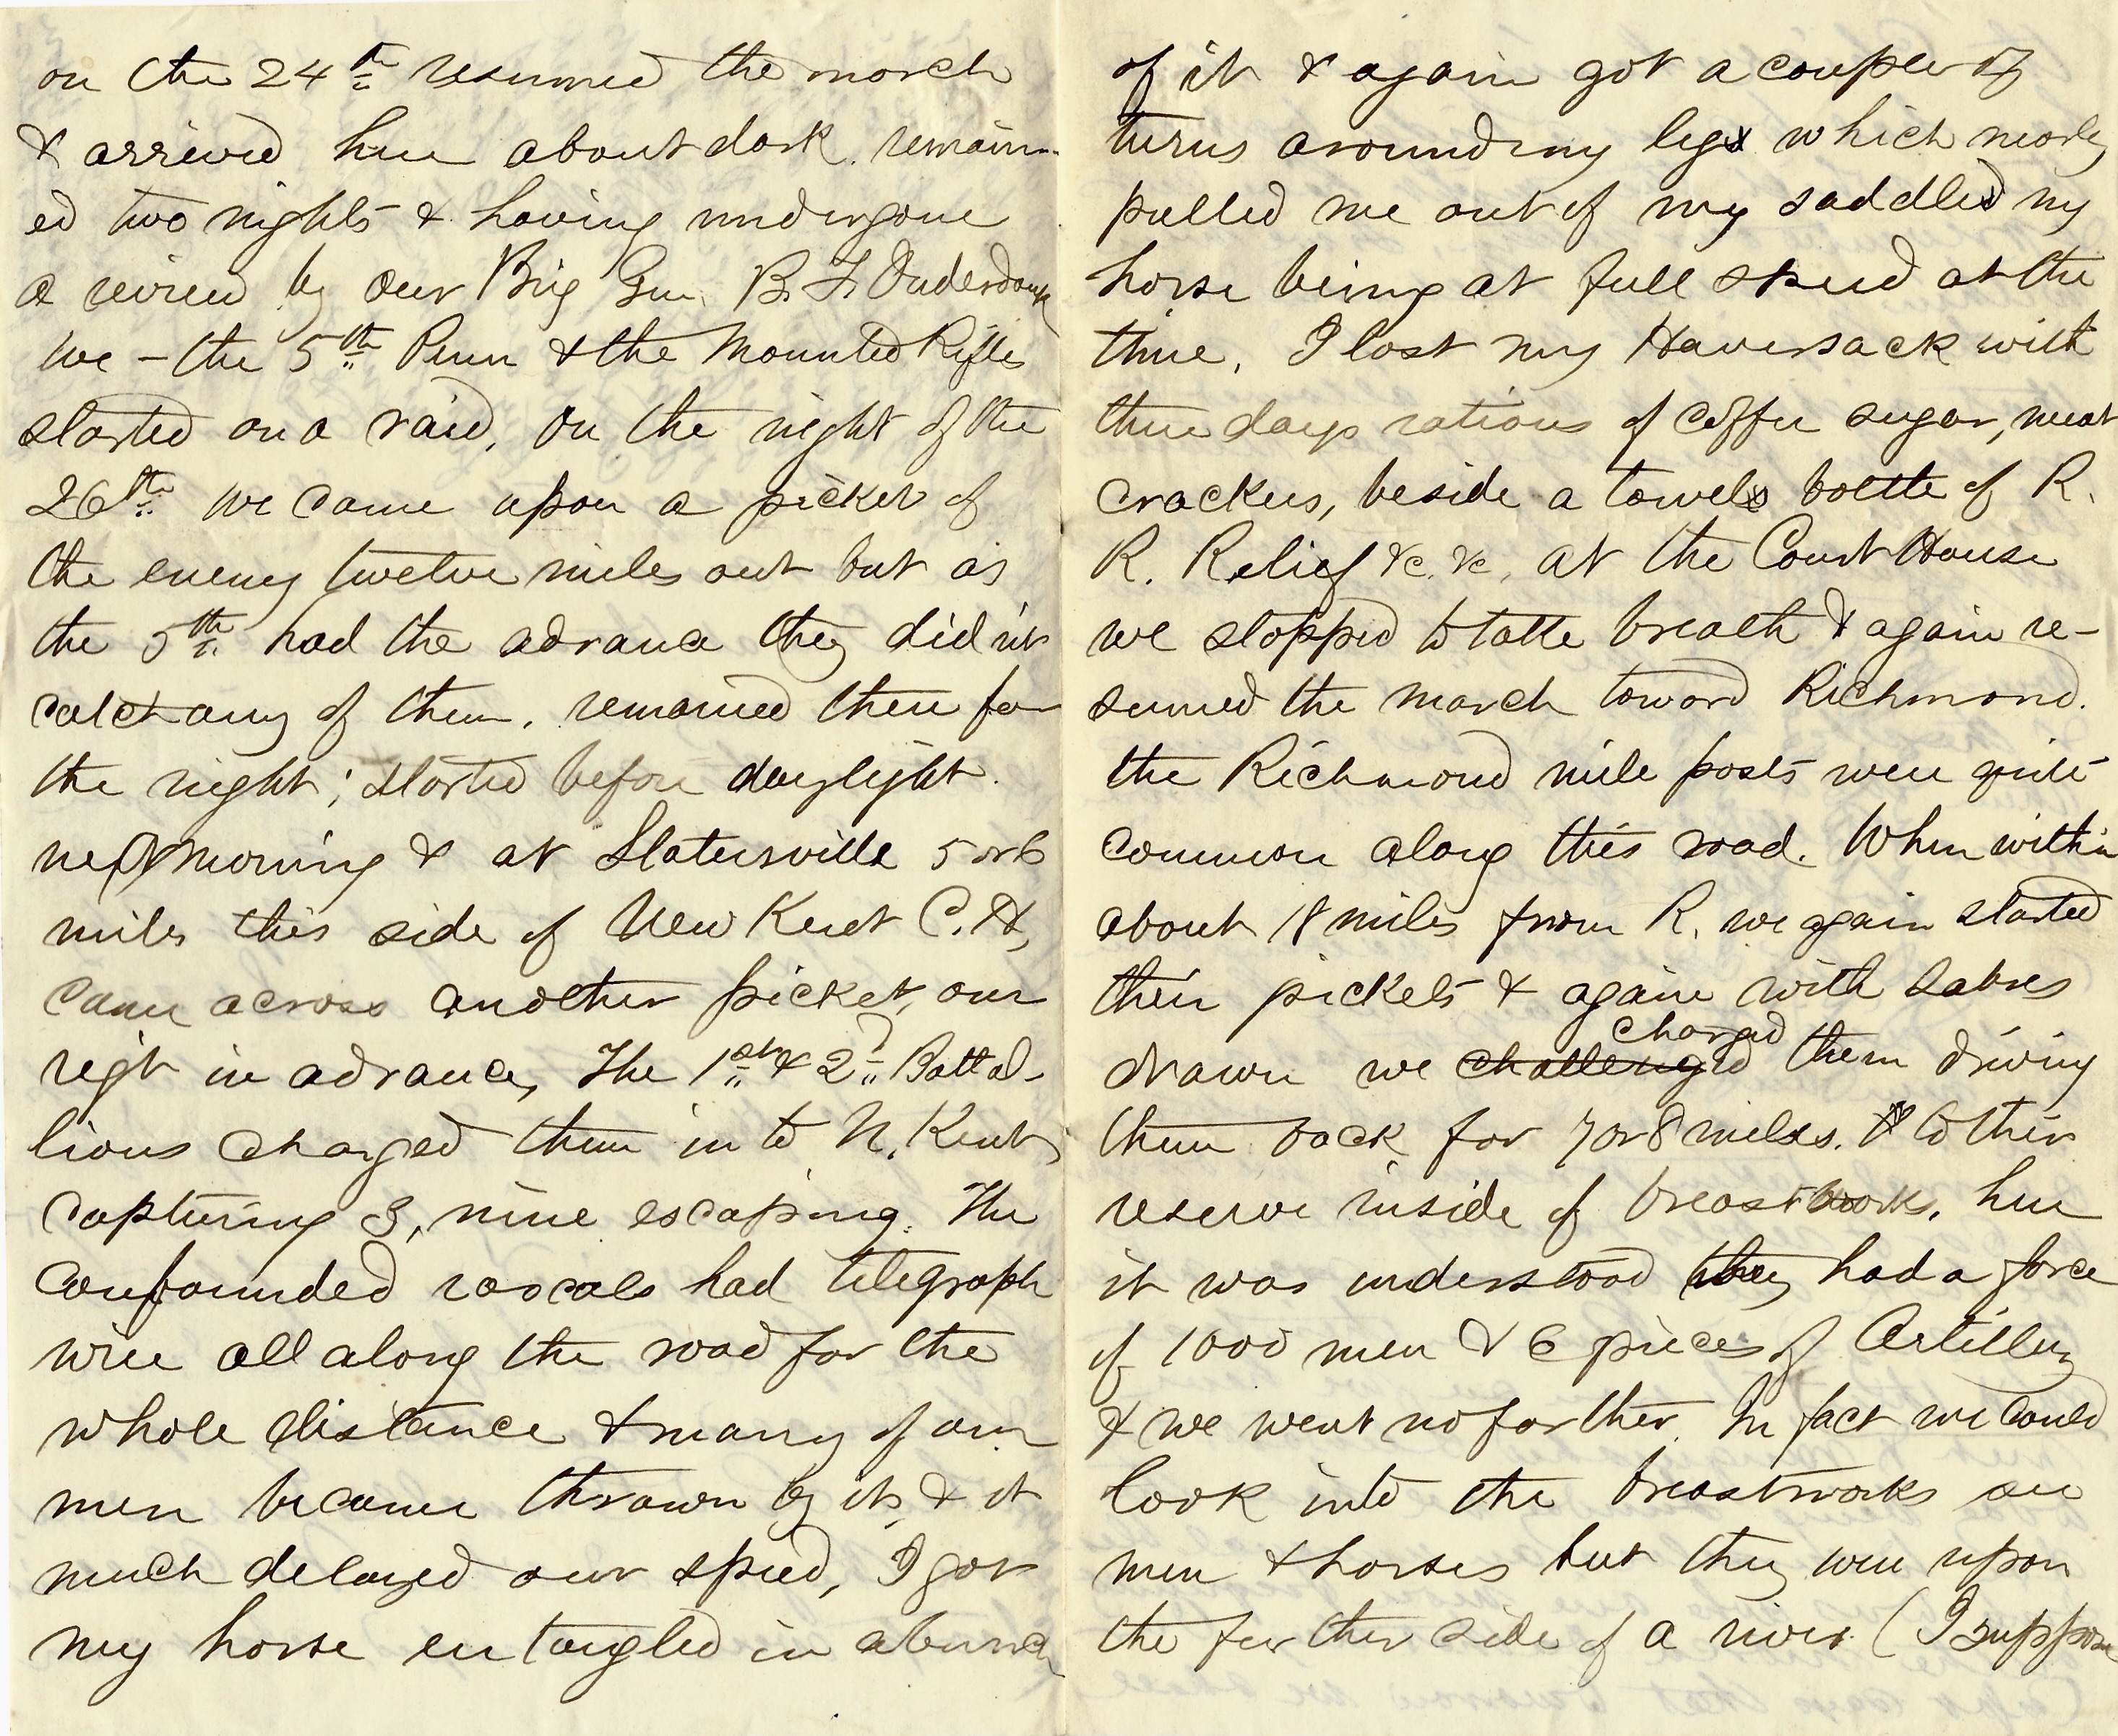 on the 24th resumed the march
& arrived here about dark. remain-
ed two nights & having undergone
a review by our Brig Gen. B. F. Onderdonk
we – the 5th Penn & the Mounted Rifles
started on a raid. On the night of the
26th we came upon a picket of
the enemy twelve miles out but as
the 5th had the advance they didn't
catch any of them. remained there for
the night; started before daylight.
next morning & at Slatersville 5 or 6
miles this side of New Kent C. H,
came across another picket, our
regt in advance, The 1st & 2d Battal-
lions charged them in to N. Kent,
capturing 3, nine escaping. The
confounded rascals had telegraph
wire all along the road for the
whole distance & many of our
men became thrown by it, & it
much delayed our speed, I got
my horse entangled in a bunch
of it & again got a couple of
turns around my leg which nearly
pulled me out of my saddle my
horse being at full speed at the
time. I lost my Haversack with
three days rations of coffee sugar, meat
crackers, beside a towel bottle of R.
R. Relief &c. &c, At the Court House
we stopped to take breath & again re-
sumed the march toward Richmond.
the Richmond mile posts were quite
common along this road. When within
about 18 miles from R. we again started
their pickets & again with sabres
drawn we challenged charged them driving
them back for 7 or 8 miles. to their
reserve inside of breastworks. here
it was understood they had a force
of 1000 men & 6 pieces of Artillery
& we went no farther. In fact we could
look into the breastworks see
men & horses but they were upon
the further side of a river (I suppose